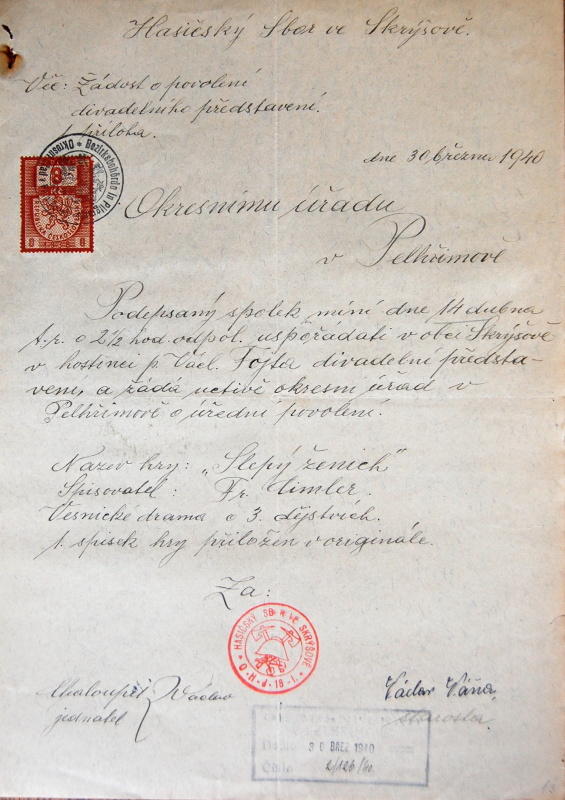 Hasičský Sbor ve Skrýšově.
Věc: Žádost o povolení
divadelního představení.
1 příloha.
dne 30. března 1940
8
Kč
8 8
Okresnímu úřadu
v Pelhřimově
Podepsaný spolek míní dne 14 dubna
t.r. o 2½ hod. odpol. uspořádati v obci Skrýšově
v hostinci p. Václ. Fojta divadelní předsta-
vení, a žádá uctivě okresní úřad v
Pelhřimově o úřední povolení.
Název hry: „Slepý ženich"
Spisovatel: Fr.
Vesnické drama o 3. dějstvích.
1. spisek hry přiložen v originále.
Za:
HASIČSKÝ SBOR VE SKRÝŠOVĚ
O·H·J·18·1·
Chaloupek Václav
jednatel
Václav Váňa
starosta
Došlo 30 BŘEZ 1940
Číslo 2/126/40.